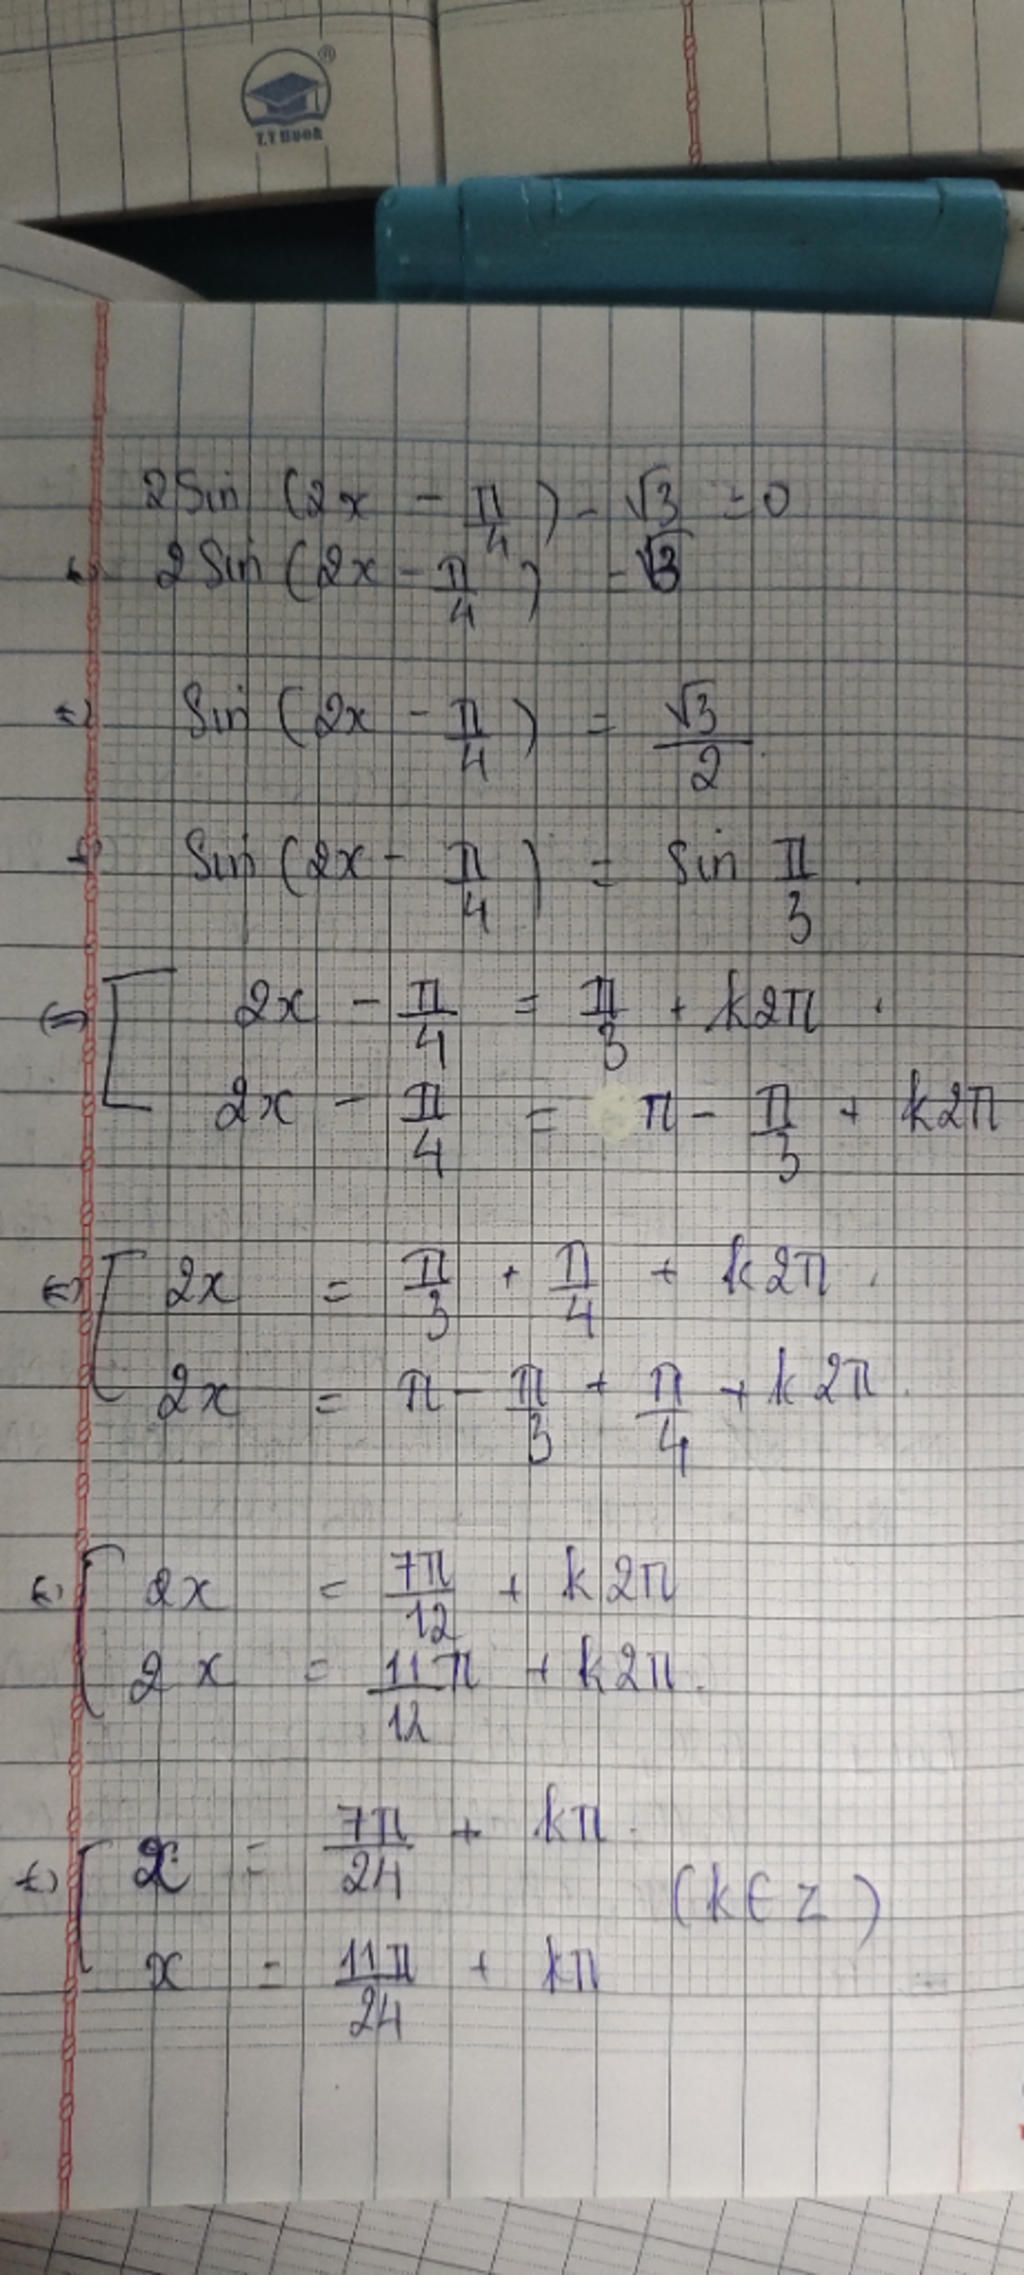 T.T Book ®
2 Sin (2x - π/4) - √3 = 0
⇔ 2 Sin (2x - π/4) = √3
⇔ Sin (2x - π/4) = √3/2.
⇔ Sin (2x - π/4) = Sin π/3.
⇔ [ 2x - π/4 = π/3 + k2π.
2x - π/4 = π - π/3 + k2π
⇔ [ 2x = π/3 + π/4 + k2π.
2x = π - π/3 + π/4 + k2π.
⇔ [ 2x = 7π/12 + k2π
2x = 11π/12 + k2π.
⇔ [ x = 7π/24 + kπ.
(k ∈ Z)
x = 11π/24 + kπ